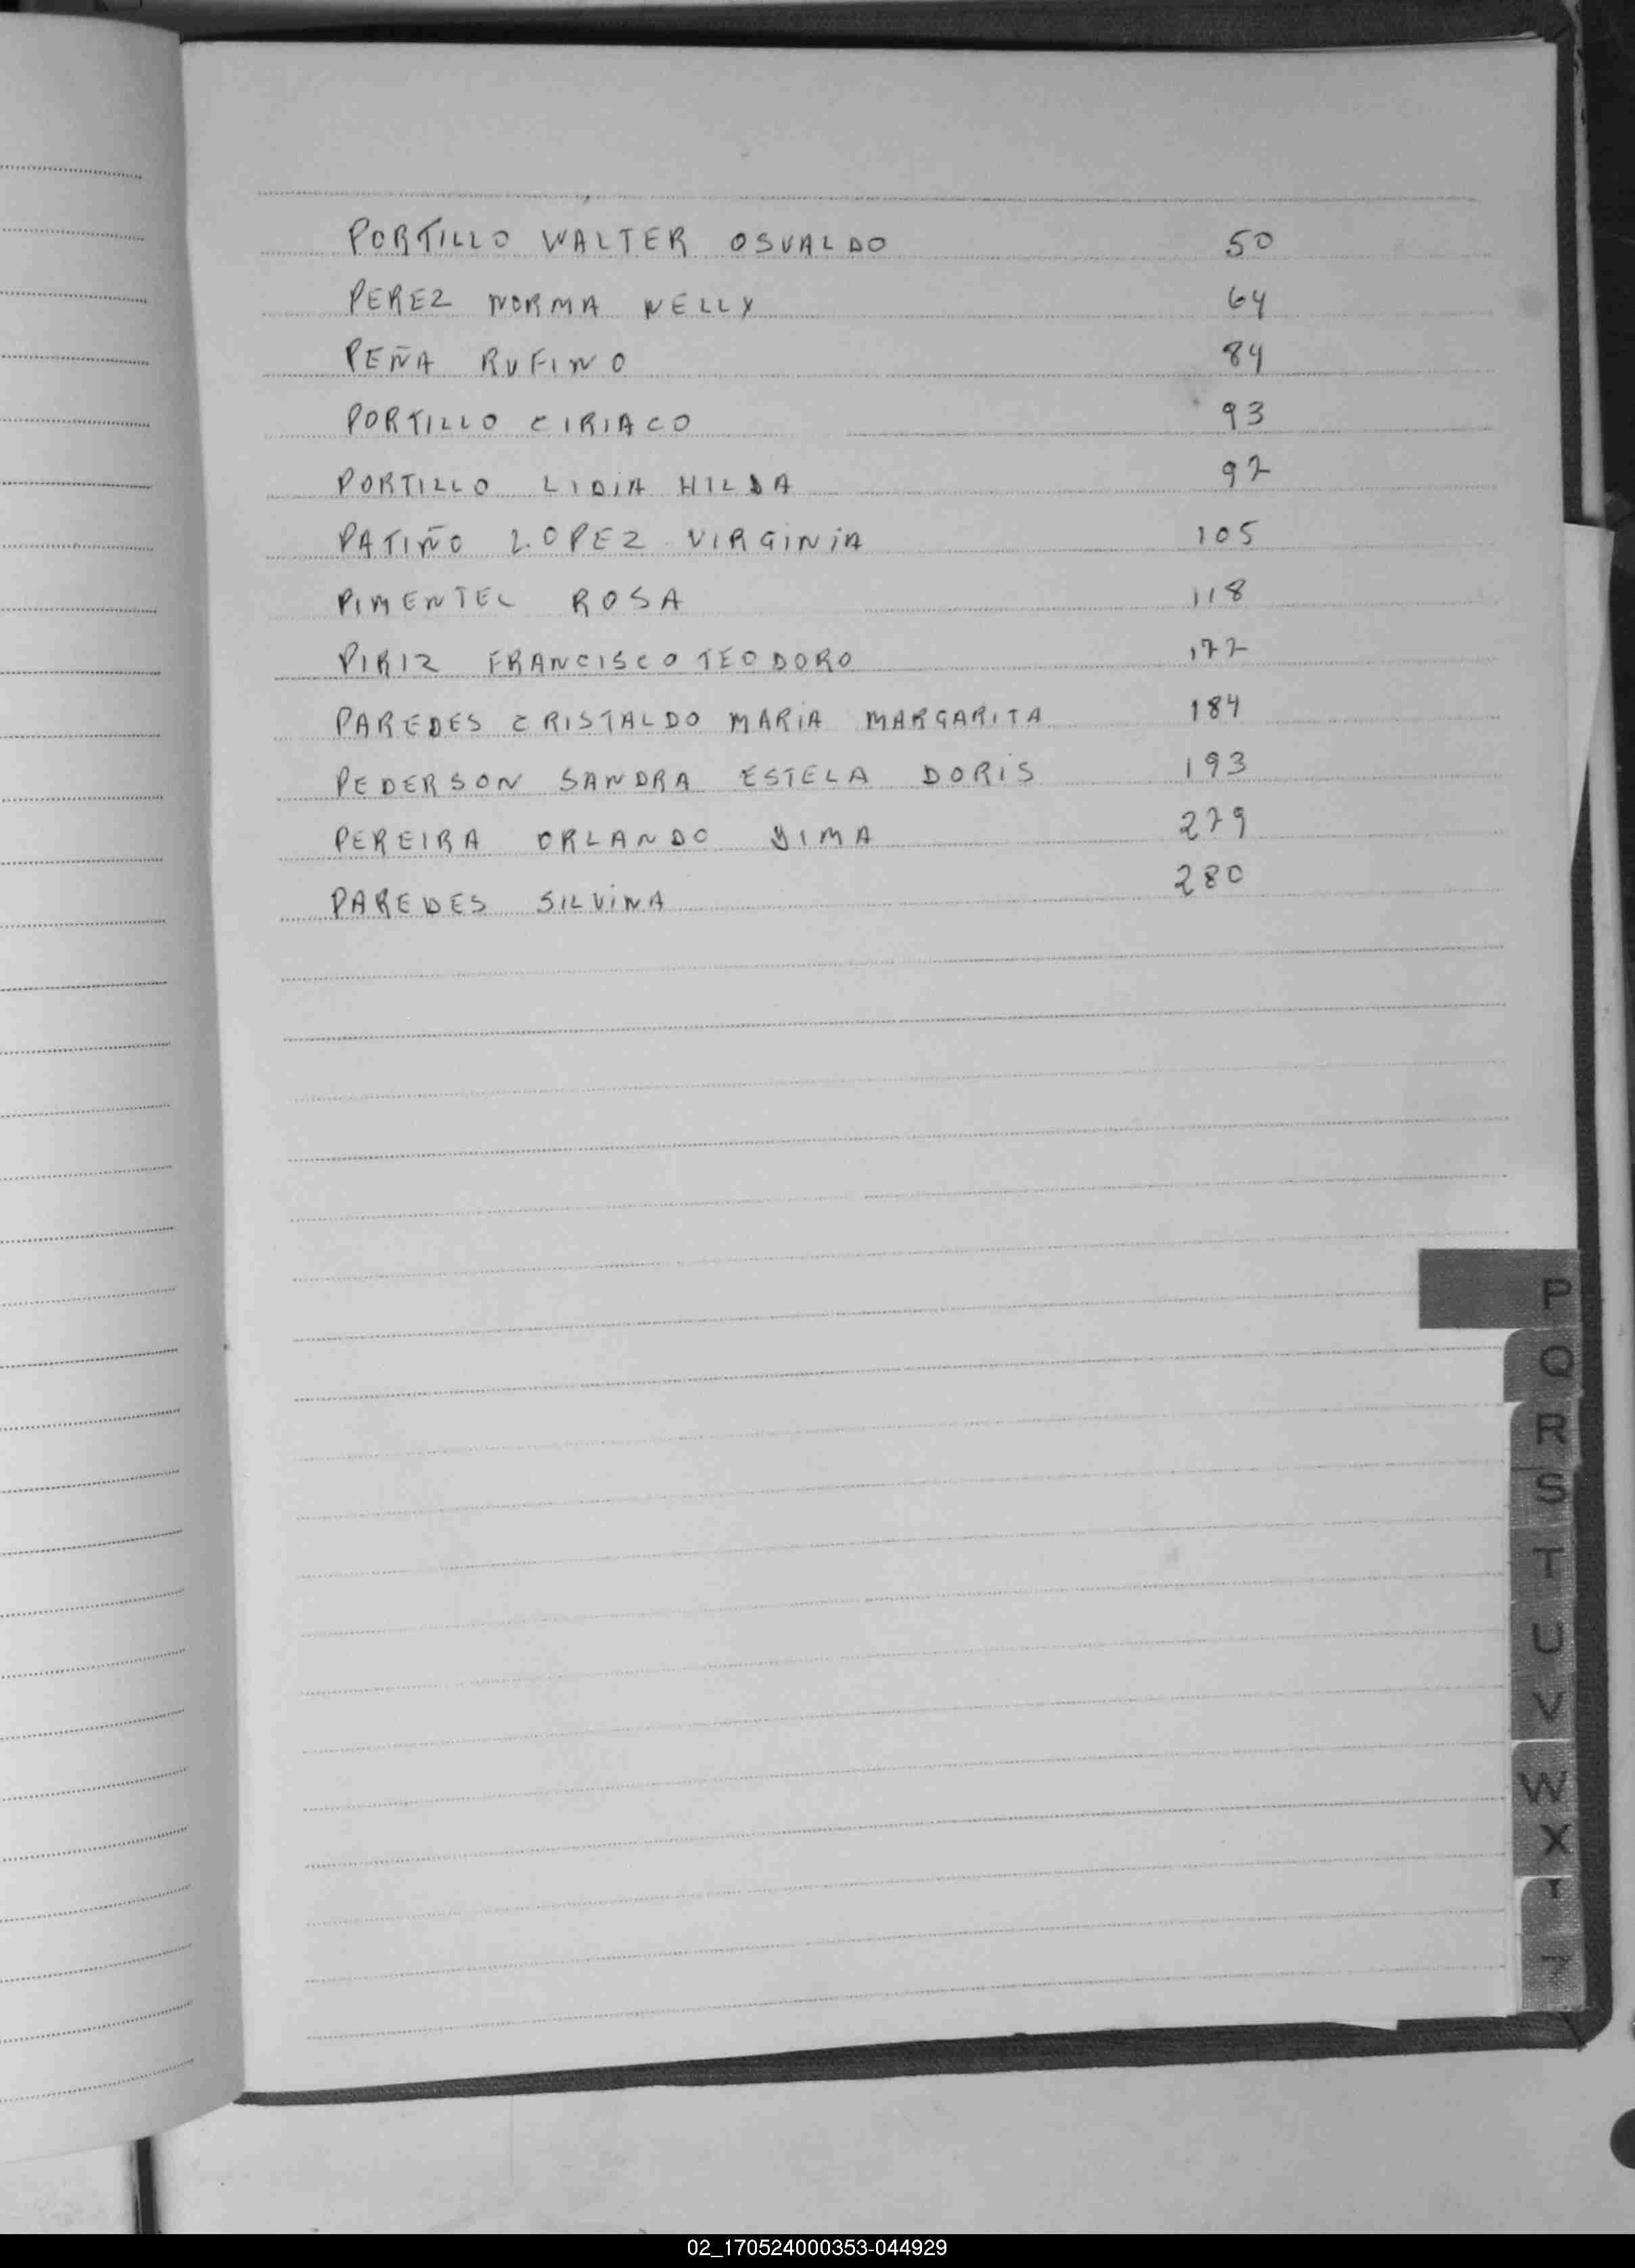 PORTILLO WALTER OSVALDO 50
PEREZ NORMA NELLY 64
PEÑA RUFINO 84
PORTILLO CIRIACO 93
PORTILLO LIDIA HILDA 97
PATIÑO LOPEZ VIRGINIA 105
PIMENTEL ROSA 118
PIRIZ FRANCISCO TEODORO 177
PAREDES CRISTALDO MARIA MARGARITA 184
PEDERSON SANDRA ESTELA DORIS 193
PEREIRA ORLANDO YIMA 279
PAREDES SILVINA 280
P
Q
R
S
T
U
V
W
X
02_170524000353-044929